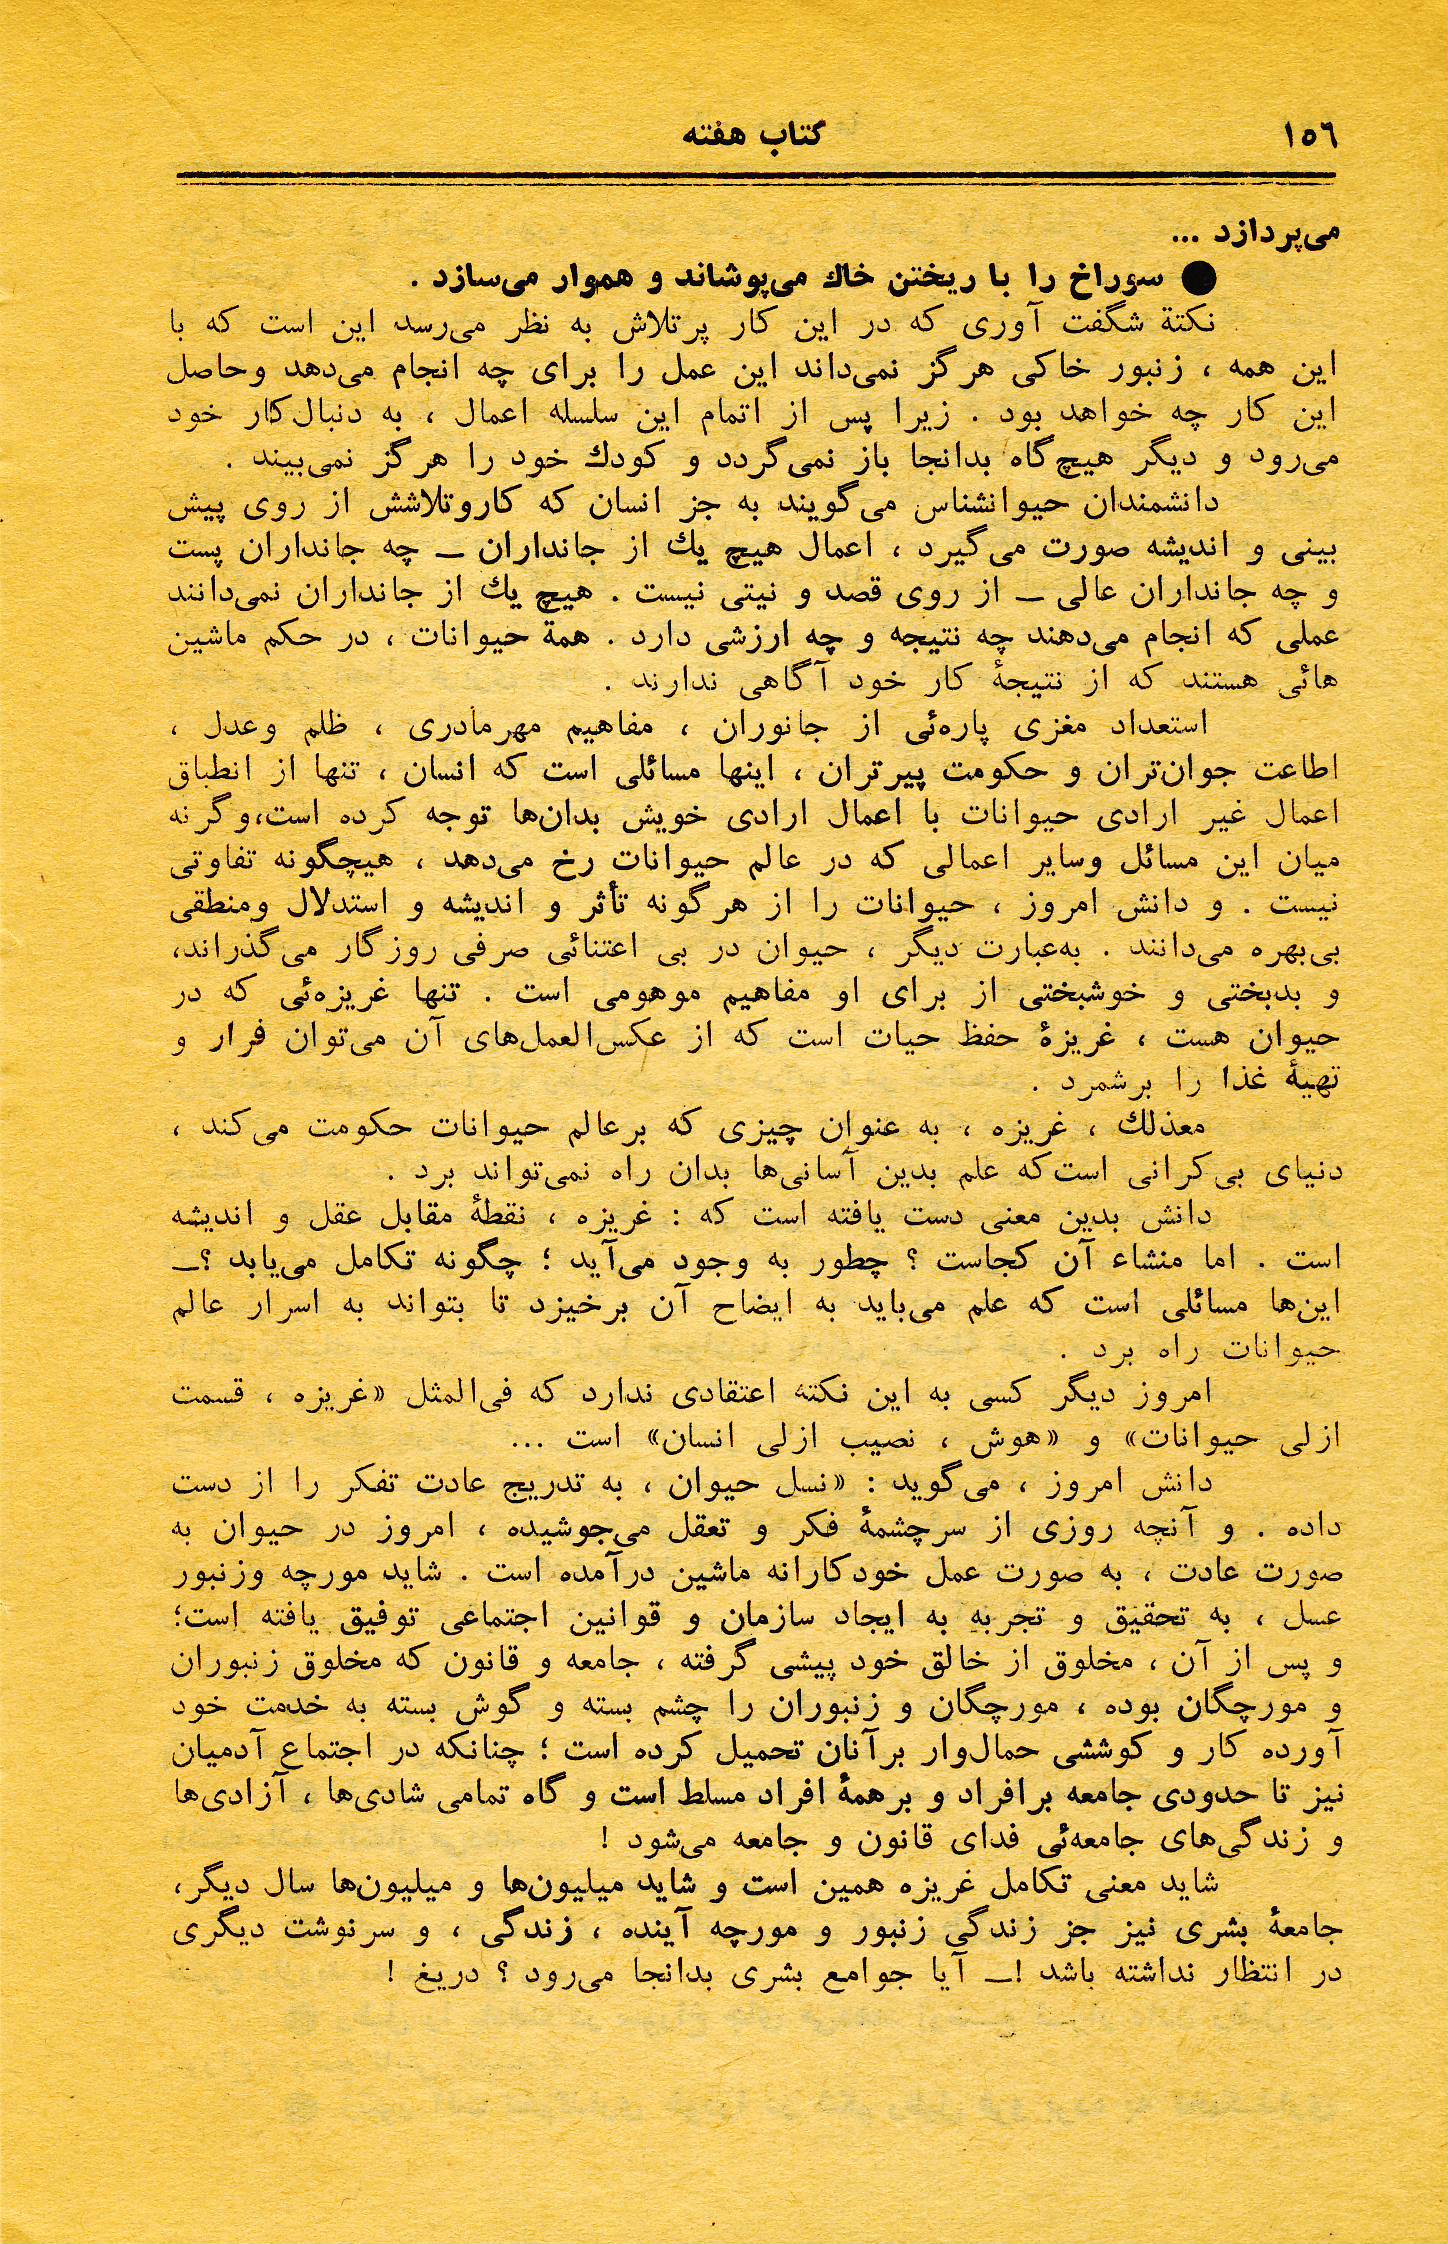 ۱۵۶
کتاب هفته
می‌پردازد ...
● سوراخ را با ریختن خاك می‌پوشاند و هموار می‌سازد .
نکتة شگفت آوری که در این کار پرتلاش به نظر می‌رسد این است که با
این همه ، زنبور خاکی هرگز نمی‌داند این عمل را برای چه انجام می‌دهد وحاصل
این کار چه خواهد بود . زیرا پس از اتمام این سلسله اعمال ، به دنبال‌کار خود
می‌رود و دیگر هیچ‌گاه بدانجا باز نمی‌گردد و کودك خود را هرگز نمی‌بیند .
دانشمندان حیوانشناس می‌گویند به جز انسان که کاروتلاشش از روی پیش
بینی و اندیشه صورت می‌گیرد ، اعمال هیچ یك از جانداران ــ چه جانداران پست
و چه جانداران عالی ــ از روی قصد و نیتی نیست . هیچ یك از جانداران نمی‌دانند
عملی که انجام می‌دهند چه نتیجه و چه ارزشی دارد . همة حیوانات ، در حکم ماشین
هائی هستند که از نتیجهٔ کار خود آگاهی ندارند .
استعداد مغزی پاره‌ئی از جانوران ، مفاهیم مهرمادری ، ظلم وعدل ،
اطاعت جوان‌تران و حکومت پیرتران ، اینها مسائلی است که انسان ، تنها از انطباق
اعمال غیر ارادی حیوانات با اعمال ارادی خویش بدان‌ها توجه کرده است،وگرنه
میان این مسائل وسایر اعمالی که در عالم حیوانات رخ می‌دهد ، هیچگونه تفاوتی
نیست . و دانش امروز ، حیوانات را از هرگونه تأثر و اندیشه و استدلال ومنطقی
بی‌بهره می‌دانند . به‌عبارت دیگر ، حیوان در بی اعتنائی صرفی روزگار می‌گذراند،
و بدبختی و خوشبختی از برای او مفاهیم موهومی است . تنها غریزه‌ئی که در
حیوان هست ، غریزهٔ حفظ حیات است که از عکس‌العمل‌های آن می‌توان فرار و
تهیهٔ غذا را برشمرد .
معذلك ، غریزه ، به عنوان چیزی که برعالم حیوانات حکومت می‌کند ،
دنیای بی‌کرانی است‌که علم بدین آسانی‌ها بدان راه نمی‌تواند برد .
دانش بدین معنی دست یافته است که : غریزه ، نقطهٔ مقابل عقل و اندیشه
است . اما منشاء آن کجاست ؟ چطور به وجود می‌آید ؛ چگونه تکامل می‌یابد ؟ــ
این‌ها مسائلی است که علم می‌باید به ایضاح آن برخیزد تا بتواند به اسرار عالم
حیوانات راه برد .
امروز دیگر کسی به این نکته اعتقادی ندارد که فی‌المثل «غریزه ، قسمت
ازلی حیوانات» و «هوش ، نصیب ازلی انسان» است ...
دانش امروز ، می‌گوید : «نسل حیوان ، به تدریج عادت تفکر را از دست
داده . و آنچه روزی از سرچشمهٔ فکر و تعقل می‌جوشیده ، امروز در حیوان به
صورت عادت ، به صورت عمل خودکارانه ماشین درآمده است . شاید مورچه وزنبور
عسل ، به تحقیق و تجربه به ایجاد سازمان و قوانین اجتماعی توفیق یافته است؛
و پس از آن ، مخلوق از خالق خود پیشی گرفته ، جامعه و قانون که مخلوق زنبوران
و مورچگان بوده ، مورچگان و زنبوران را چشم بسته و گوش بسته به خدمت خود
آورده کار و کوششی حمال‌وار برآنان تحمیل کرده است ؛ چنانکه در اجتماع آدمیان
نیز تا حدودی جامعه برافراد و برهمهٔ افراد مسلط است و گاه تمامی شادی‌ها ، آزادی‌ها
و زندگی‌های جامعه‌ئی فدای قانون و جامعه می‌شود !
شاید معنی تکامل غریزه همین است و شاید میلیون‌ها و میلیون‌ها سال دیگر،
جامعهٔ بشری نیز جز زندگی زنبور و مورچه آینده ، زندگی ، و سرنوشت دیگری
در انتظار نداشته باشد !ــ آیا جوامع بشری بدانجا می‌رود ؟ دریغ !